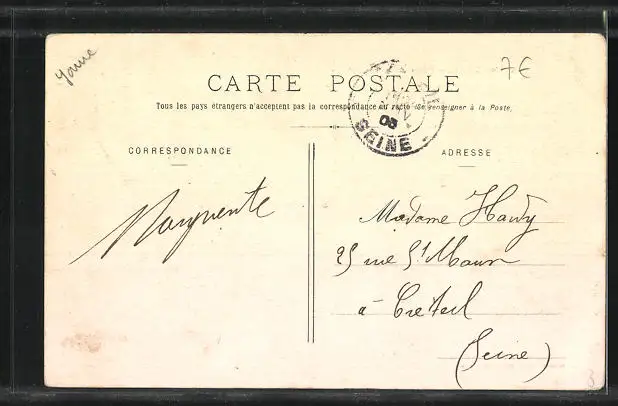 Yonne
7€
CARTE POSTALE
Tous les pays étrangers n'acceptent pas la correspondance au recto (Se renseigner à la Poste.
05
SEINE
CORRESPONDANCE
ADRESSE
Marguerite
Madame Hardy
25 rue St Maur
à Creteil
(Seine)
3